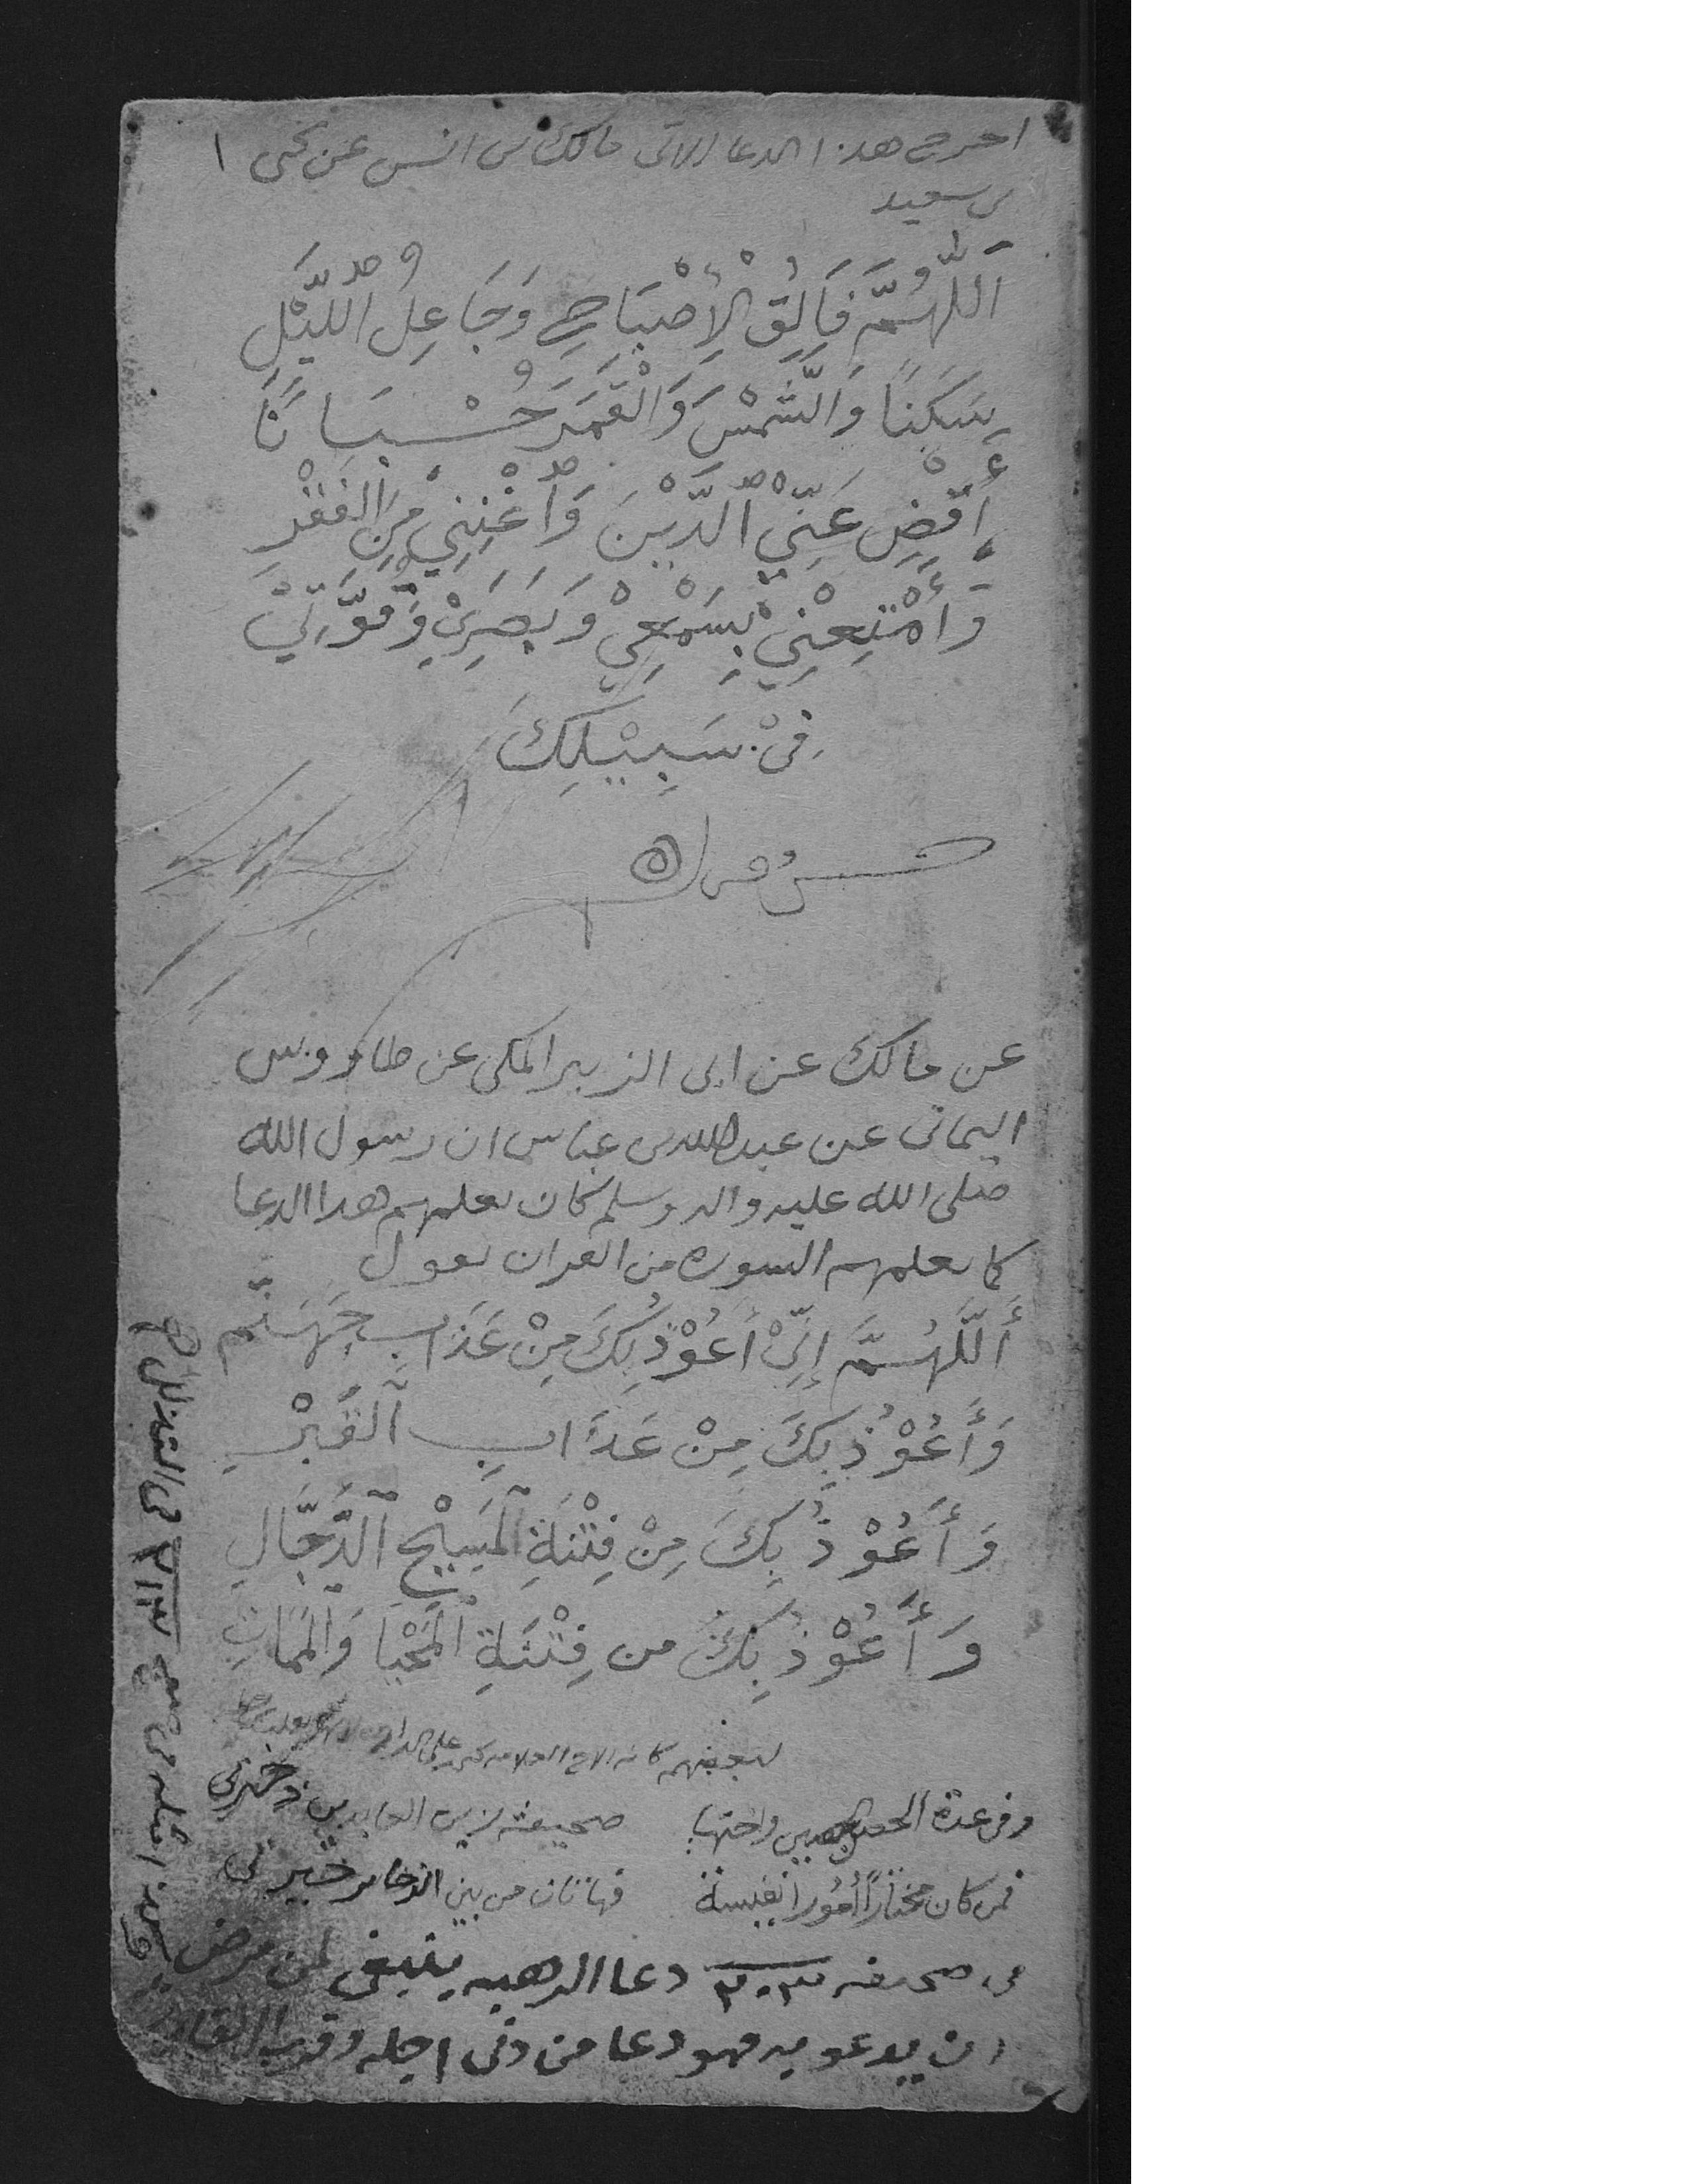 اخرج هذا الدعا الاتى مالك بن انس عن يحيى
بن سعيد
اَللّٰهُمَّ فَالِقُ الْإِصْبَاحِ وَجَاعِلُ اللَّيْلِ
سَكَنًا وَالشَّمْسَ وَالْقَمَرَ حُسْبَانًا
أَقْضِ عَنِّيْ الدَّيْنَ وَاغْنِنِيْ مِنَ الْفَقْرِ
وَأَمْتِعْنِيْ بِسَمْعِيْ وَبَصَرِيْ وَقُوَّتِيْ
فِيْ سَبِيْلِكَ
عن مالك عن ابى الزبير المكى عن طاووس
اليمانى عن عبدالله بن عباس ان رسول الله
صلى الله عليه واله وسلم كان يعلمهم هذا الدعا
كما يعلمهم السوره من القران يقول
أَللَّهُمَّ إِنِّيْ أَعُوْذُ بِكَ مِنْ عَذَابِ جَهَنَّمَ
وَأَعُوْذُ بِكَ مِنْ عَذَابِ ٱلْقَبْرِ
وَأَعُوْذُ بِكَ مِنْ فِتْنَةِ ٱلْمَسِيْحِ ٱلدَّجَّالِ
وَأَعُوْذُ بِكَ من فِتْنَةِ ٱلْمَحْيَا وَٱلْمَمَاتِ
لبعضهم
وفى عدة الحصن الحصين واختها صحيفة زين العابدين ذخيرتى
فمن كان مختارًا أمورا نفيسة فهاتان من بين الذخاير خيرتى
فى صحيفه ٢٠٣ دعا الرهبه ينبغى لمن مرض
ان يدعو به فهو دعا من دنى اجله وقرب